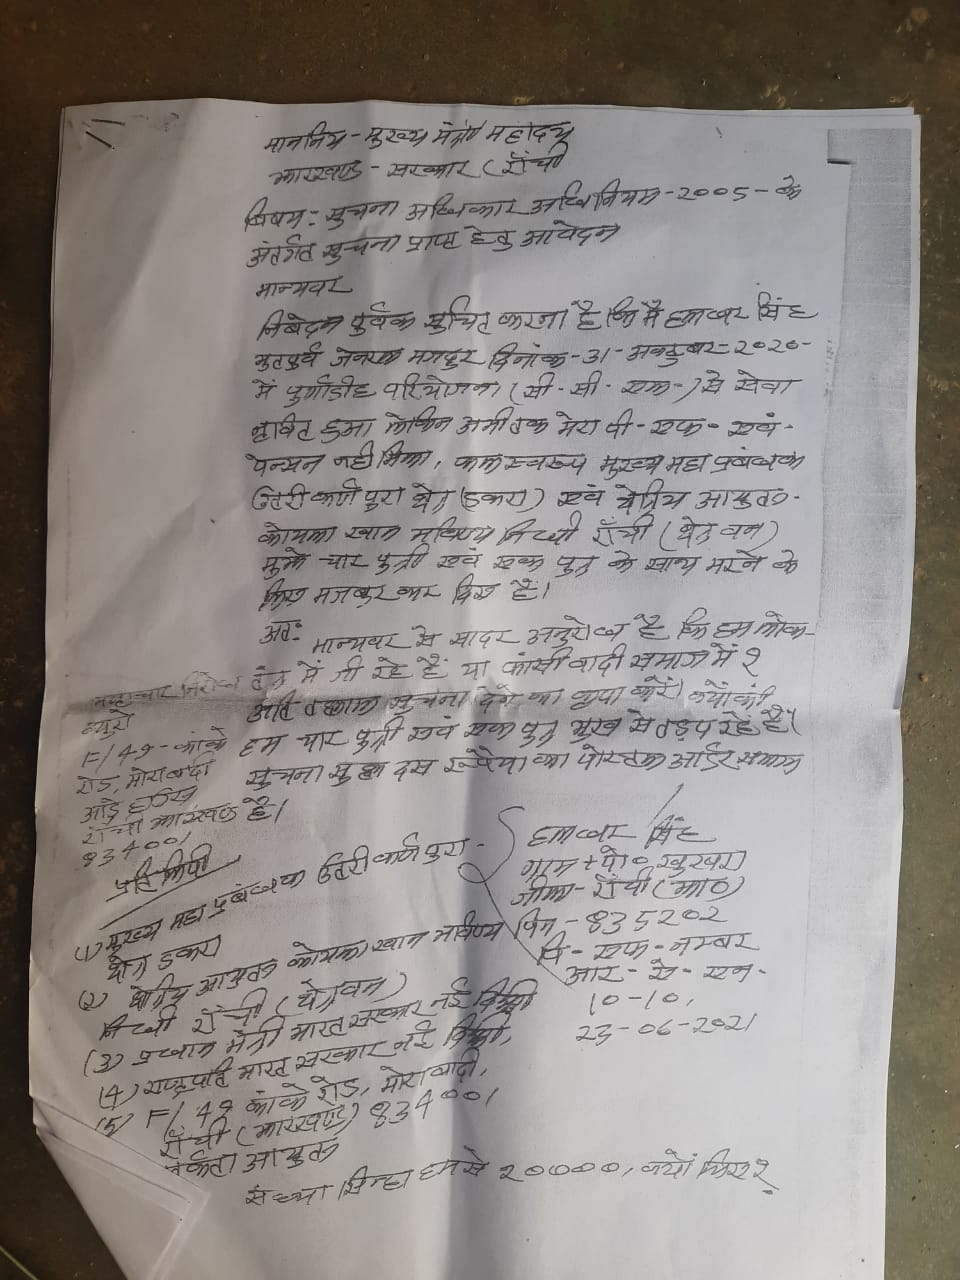 माननिय - मुख्य मंत्री महोदय
झारखण्ड - सरकार (राँची
विषय: सुचना अधिकार अधिनियम - २००5 - के
अंतर्गत सुचना प्राप्त हेतु आवेदन
मान्यवर
निवेदन पुर्वक सुचित करना है कि मै हलधर सिंह
भुतपुर्व जेनरल मजदुर दिनांक - 31 - अक्टुबर - 2०2० -
में पुर्णाडीह परियोजना (सी - सी - एल -) से सेवा
हुआ लेकिन अभीतक मेरा पी - एफ - एवं -
पेन्सन नही मिला, फलस्वरूप मुख्य महा प्रबंधक
उतरी कर्ण पुरा क्षेत्र (डकरा) एवं क्षेत्रिय आयुक्त -
कोयला खान भविष्य निधी राँची (क्षेत्र वन)
मुझे चार पुत्री एवं एक पुत्र के साथ मरने के
लिए मजबुर कर दिए हैं।
अत: मान्यवर से सादर अनुरोध है कि हम लोक -
तंत्र में जी रहे हैं या फांसी वादी समाज में ?
सुचना देने का कृपा करें। क्योंकी
हम चार पुत्री एवं एक पुत्र भुख से तड़प रहे हैं।
सुचना शुल्क दस रूपैया का पोस्टल आर्डर संलग्न
है।
भ्रष्टाचार निरोधक
ब्युरो
F/49 - कांके
रोड, मोराबादी
राँची झारखण्ड
834००1
हलधर सिंह
ग्राम + पो० खुखरा
जीला - राँची (झा०)
पिन - 8352०2
पि - एफ - नम्बर
आर - एन -
10-10,
23-06-2021
प्रति लिपी
(1) मुख्य महा प्रबंधक उतरी कर्ण पुरा -
क्षेत्र डकरा
(2) क्षेत्रिय आयुक्त कोयला खान भविष्य
निधी राँची (क्षेत्र वन)
(3) प्रधान मंत्री भारत सरकार नई दिल्ली
(4) राष्ट्रपति भारत सरकार नई दिल्ली,
(5) F/49 कांके रोड, मोराबादी,
राँची (झारखण्ड) 834००1
आयुक्त
संध्या सिन्हा हमसे 2००००, क्यों लिए ?